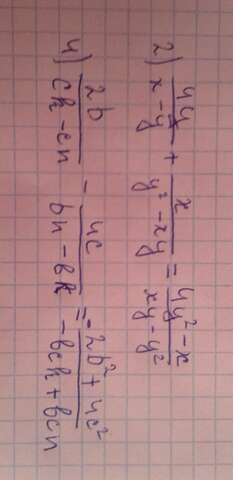 2) 4y/(x-y) + x/(y²-xy) = (4y²-x)/(xy-y²)
4) 2b/(ck-cn) - 4c/(bn-bk) = (-2b²+4c²)/(-bck+bcn)